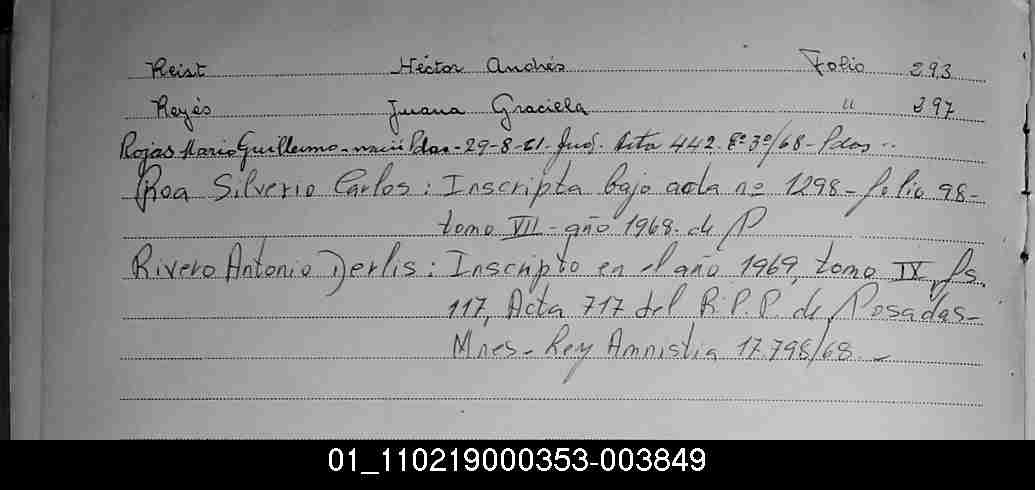 Reist Héctor Andrés Folio 293
Reyes Juana Graciela " 297
Rojas Mario Guillermo - nació Pdas - 29-8-61. Acta 442. Tº 3º/68 - Pdas..
Roa Silverio Carlos: Inscripta bajo acta nº 1298 - folio 98 -
tomo VII - año 1968. de P
Rivero Antonio Derlis: Inscripto en el año 1969, tomo IX, fs.
117, Acta 717 del R.P.P. de Posadas -
Mnes - Rey Amnistia 17.798/68. -
01_110219000353-003849